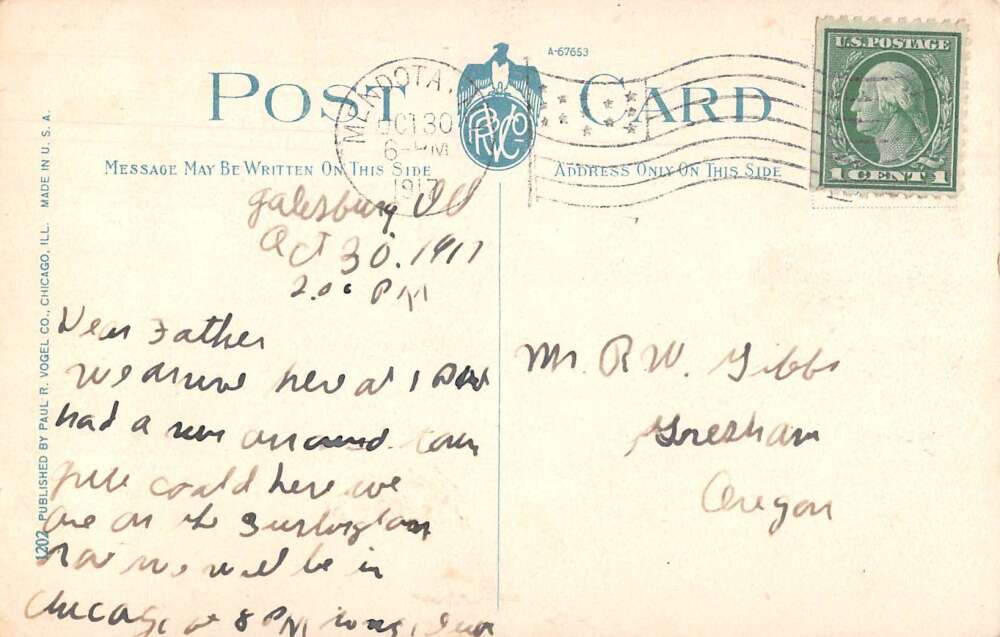 A-67653
POST CARD
U.S. POSTAGE
1 CENT 1
MENDOTA,
OCT 30
6-PM
1917
PRVCo
MESSAGE MAY BE WRITTEN ON THIS SIDE
ADDRESS ONLY ON THIS SIDE
1202 PUBLISHED BY PAUL R. VOGEL CO., CHICAGO, ILL. MADE IN U. S. A.
Galesburg Ill
Oct 30. 1917
2.00 PM
Dear Father
We arrive here at 1
had a run arround town
could here we
are on the Burlington
now we will be in
Chicago at 8 PM
Mr. R W. Gibbs
Gresham
Oregon